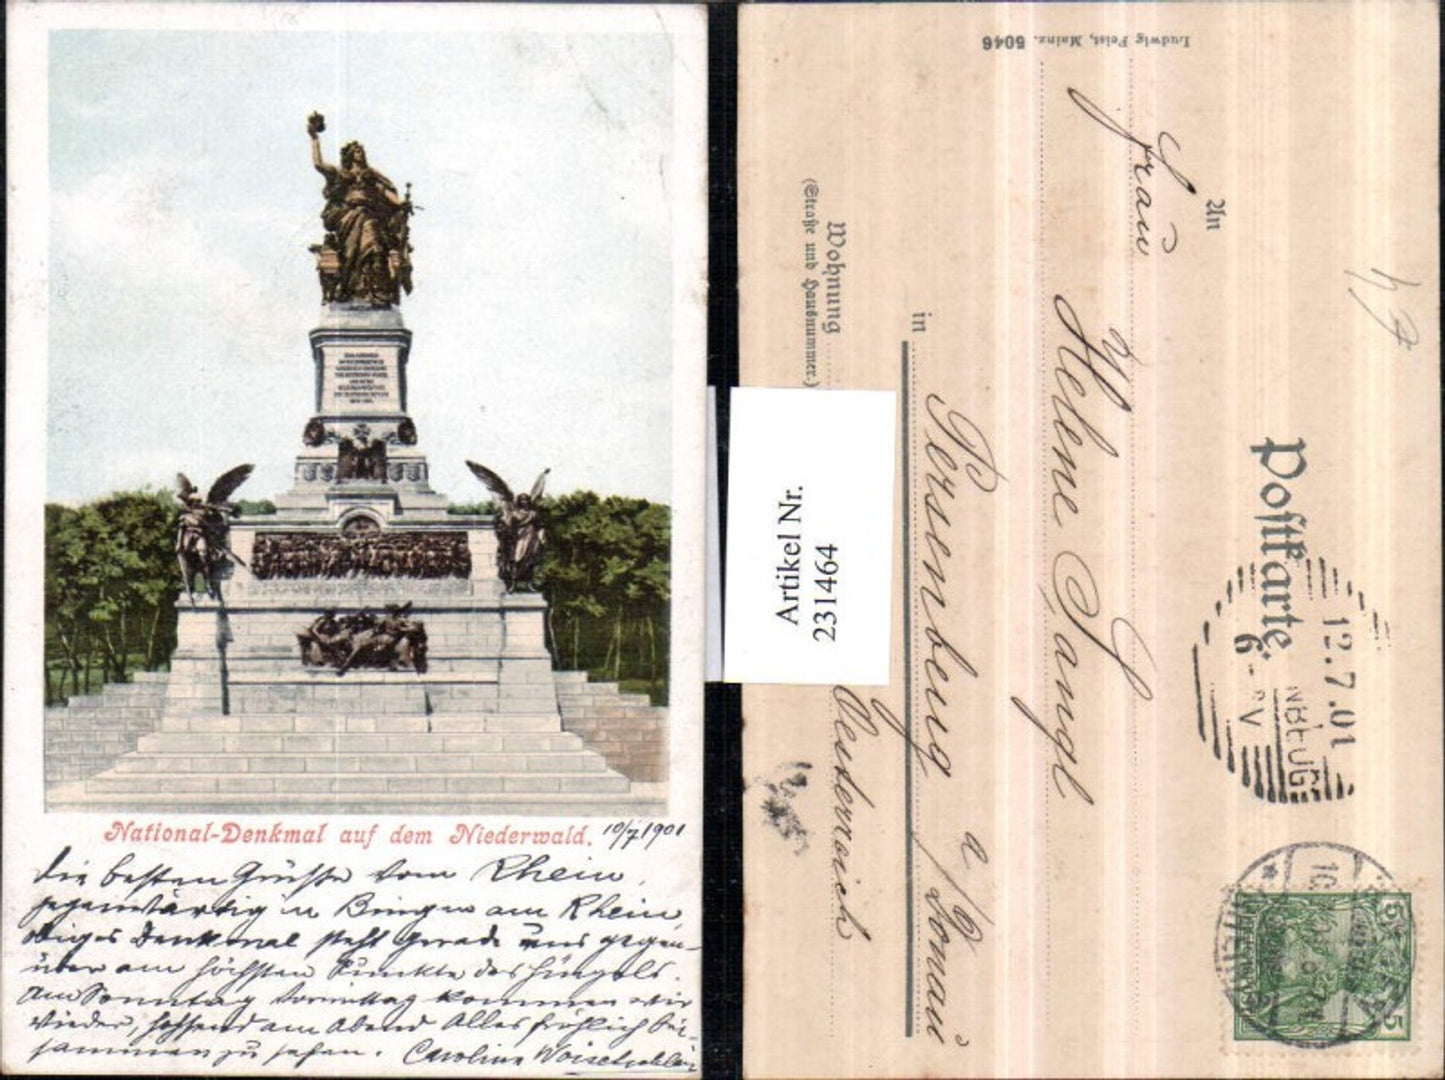 National-Denkmal auf dem Niederwald.
10/7 1901
Die besten Grüße vom Rhein,
gegenwärtig in Bingen am Rhein
obiges Denkmal steht gerade uns gegen-
über am höchsten Punkte des Hügels.
Am Sonntag Vormittag kommen wir
wieder, hoffend am Abend Alles fröhlich bei-
sammen zu sehen. Caroline
Artikel Nr.
231464
Ludwig Feist, Mainz. 5046
Postkarte.
An
Frau
Helene Sangl
in
Persenbeug a/Donau
Wohnung
(Straße und Hausnummer.)
Oesterreich
12.7.01
6-
5
5